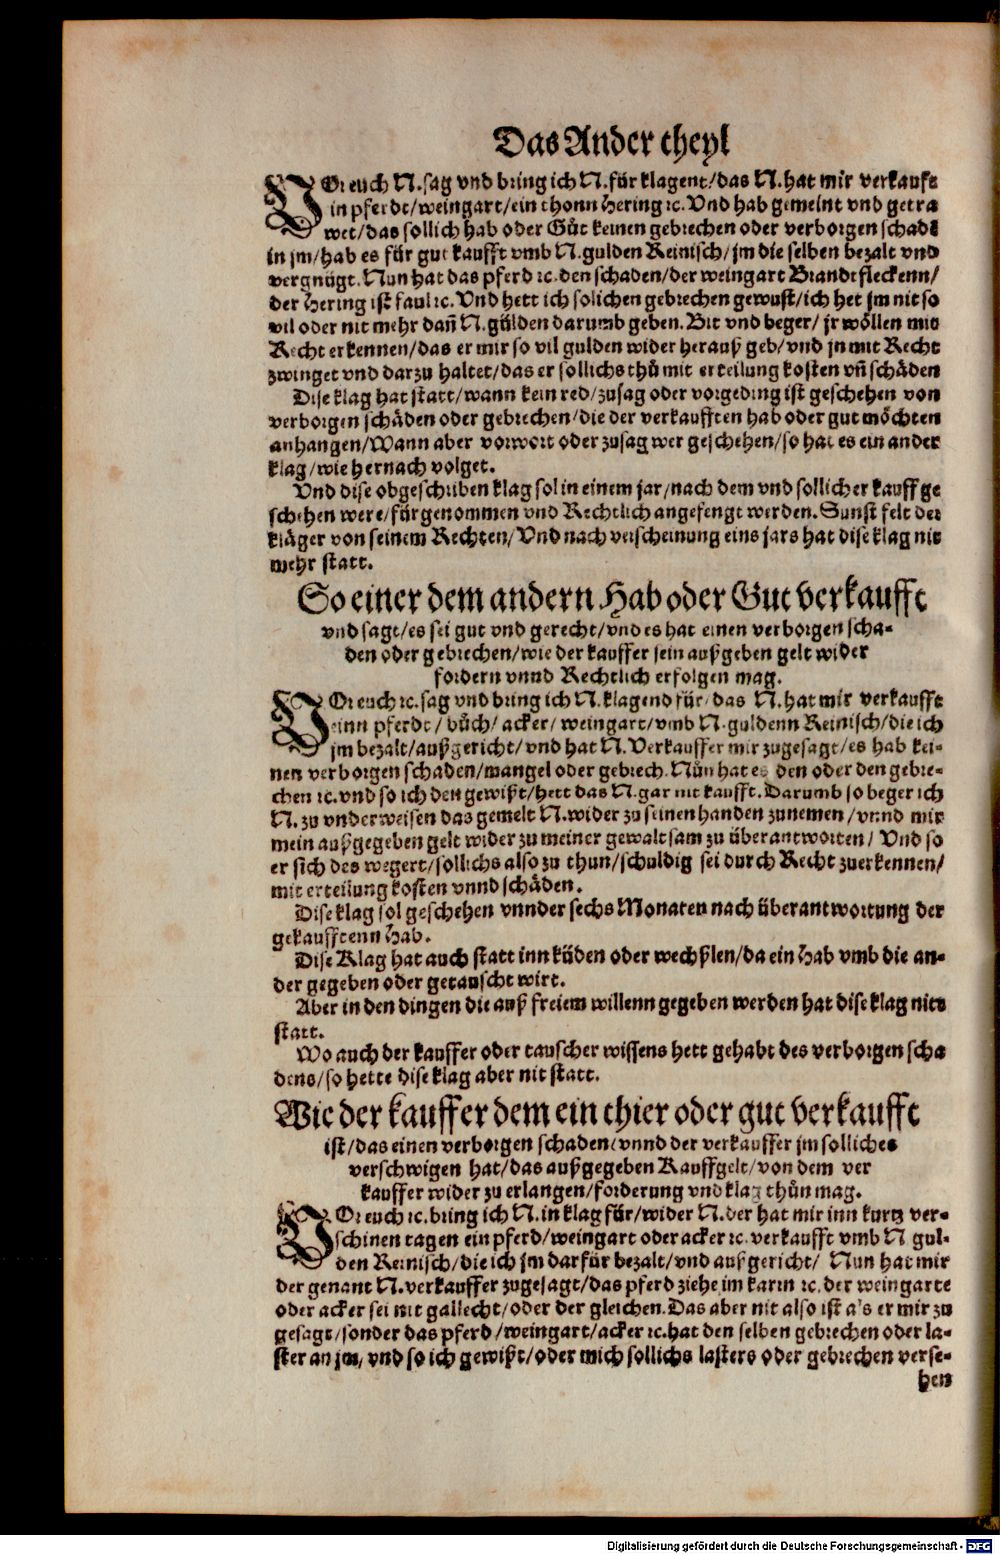 Das Ander theyl
VOr euch N. sag vnd bring ich N. für klagent/das N. hat mir verkaufft
in pferdt/weingart/ein thonn Hering ꝛc. Vnd hab gemeint vnd getra
wet/das sollich hab oder Gůt keinen gebrechen oder verborgen schadē
in jm/hab es für gut kaufft vmb N. gulden Reinisch/jm die selben bezalt vnd
vergnügt. Nun hat das pferd ꝛc. den schaden/der weingart Brandtfleckenn/
der Hering ist faul ꝛc. Vnd hett ich solichen gebrechen gewust/ich het jm nit so
vil oder nit mehr dañ N. gülden darumb geben. Bit vnd beger/ jr wöllen mit
Recht erkennen/das er mir so vil gulden wider herauß geb/vnd jn mit Recht
zwinget vnd darzu haltet/das er sollichs thů mit erteilung kosten vñ schäden
Dise klag hat statt/wann kein red/zusag oder vorgeding ist geschehen von
verborgen schäden oder gebrechen/die der verkaufften hab oder gut möchten
anhangen/Wann aber vorwort oder zusag wer geschehen/so hat es ein ander
klag/wie hernach volget.
Vnd dise obgeschriben klag sol in einem jar/nach dem vnd sollicher kauff ge
schehen were/fürgenommen vnd Rechtlich angefengt werden. Sunst felt der
kläger von seinem Rechten/Vnd nach verscheinung eins jars hat dise klag nit
mehr statt.
So einer dem andern Hab oder Gut verkaufft
vnd sagt/es sei gut vnd gerecht/vnd es hat einen verborgen scha-
den oder gebrechen/wie der kauffer sein außgeben gelt wider
fordern vnnd Rechtlich erfolgen mag.
VOr euch ꝛc. sag vnd bring ich N. klagend für/das N. hat mir verkaufft
einn pferdt/ bůch/ acker/ weingart/vmb N. guldenn Reinisch/die ich
jm bezalt/außgericht/vnd hat N. Verkauffer mir zugesagt/es hab kei-
nen verborgen schaden/mangel oder gebrech. Nůn hat es den oder den gebre-
chen ꝛc. vnd so ich den gewißt/hett das N. gar nit kaufft. Darumb so beger ich
N. zu vnderweisen das gemelt N. wider zu seinen handen zunemen/vnnd mir
mein außgegeben gelt wider zu meiner gewaltsam zu überantworten/ Vnd so
er sich des wegert/sollichs also zu thun/schuldig sei durch Recht zuerkennen/
mit erteilung kosten vnnd schäden.
Dise klag sol geschehen vnnder sechs Monaten nach überantwortung der
gekaufftenn Hab.
Dise Klag hat auch statt inn küden oder wechßlen/da ein Hab vmb die an-
der gegeben oder getauscht wirt.
Aber in den dingen die auß freiem willenn gegeben werden hat dise klag nits
statt.
Wo auch der kauffer oder tauscher wissens hett gehabt des verborgen scha
dens/so hette dise klag aber nit statt.
Wie der kauffer dem ein thier oder gut verkaufft
ist/das einen verborgen schaden/vnnd der verkauffer jm solliches
verschwigen hat/das außgegeben Kauffgelt/von dem ver
kauffer wider zu erlangen/forderung vnd klag thůn mag.
VOr euch ꝛc. bring ich N. in klag für/wider N. der hat mir inn kurtz ver-
schinen tagen ein pferd/weingart oder acker ꝛc. verkaufft vmb N gul-
den Reinisch/die ich jm darfür bezalt/vnd außgericht/ Nun hat mir
der genant N. verkauffer zugesagt/das pferd ziehe im karrn ꝛc. der weingarte
oder acker sei nit gallecht/oder der gleichen. Das aber nit also ist als er mir zu
gesagt/sonder das pferd/weingart/acker ꝛc. hat den selben gebrechen oder la-
ster an jm/vnd so ich gewißt/oder mich sollichs lasters oder gebrechen verse-
hen
Digitalisierung gefördert durch die Deutsche Forschungsgemeinschaft - DFG